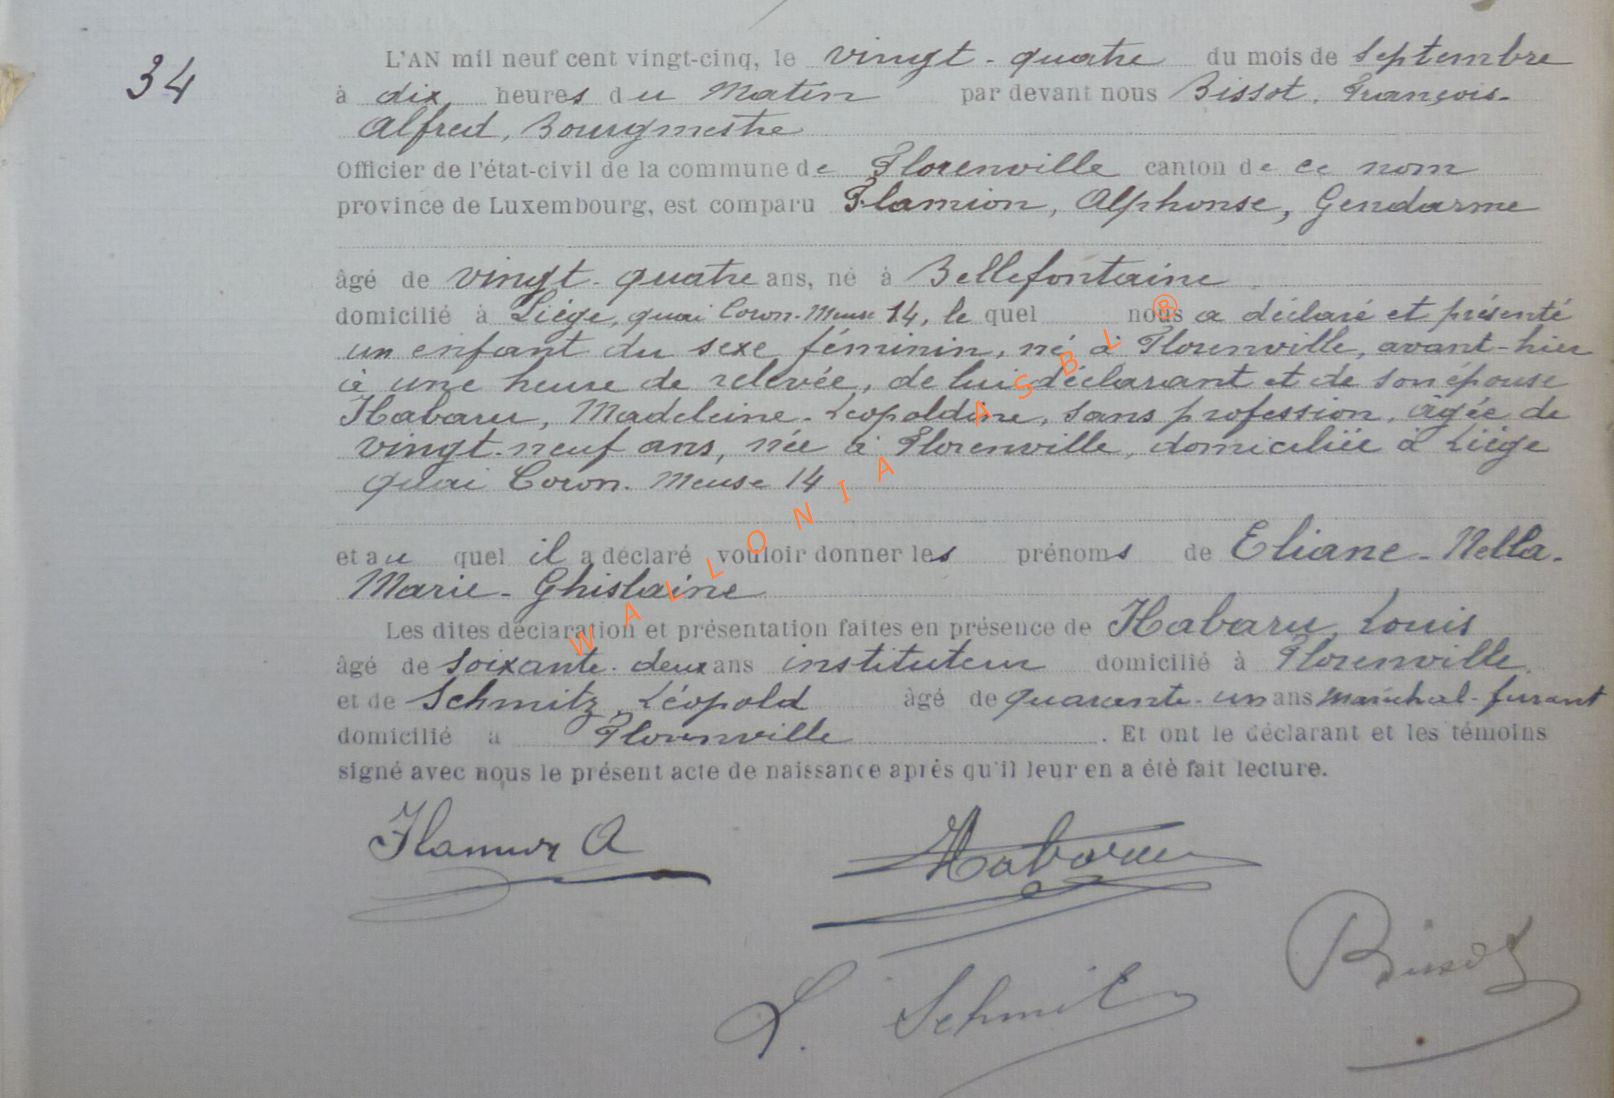 34
L'AN mil neuf cent vingt-cinq, le vingt-quatre du mois de Septembre
à dix heures du Matin par devant nous Bissot, François-
Alfred, Bourgmestre
Officier de l'état-civil de la commune de Florenville canton de ce nom
province de Luxembourg, est comparu Flamion, Alphonse, Gendarme
âgé de vingt-quatre ans, né à Bellefontaine
domicilié à Liége, quai Coron-Meuse 14, le quel nous a déclaré et présenté
un enfant du sexe féminin, né à Florenville, avant-hier
à une heure de relevée, de lui déclarant et de son épouse
Habaru, Madeleine-Léopoldine, sans profession, âgée de
vingt-neuf ans, née à Florenville, domiciliée à Liége
quai Coron-Meuse 14
et au quel il a déclaré vouloir donner les prénoms de Eliane-Nella-
Marie-Ghislaine
Les dites déclaration et présentation faites en présence de Habaru, Louis
âgé de soixante-deux ans instituteur domicilié à Florenville
et de Schmitz, Léopold âgé de quarante-un ans maréchal-ferrant
domicilié à Florenville. Et ont le déclarant et les témoins
signé avec nous le présent acte de naissance après qu'il leur en a été fait lecture.
Flamion A
Habaru
L. Schmitz
Bissot
WALLONIA ASBL ®